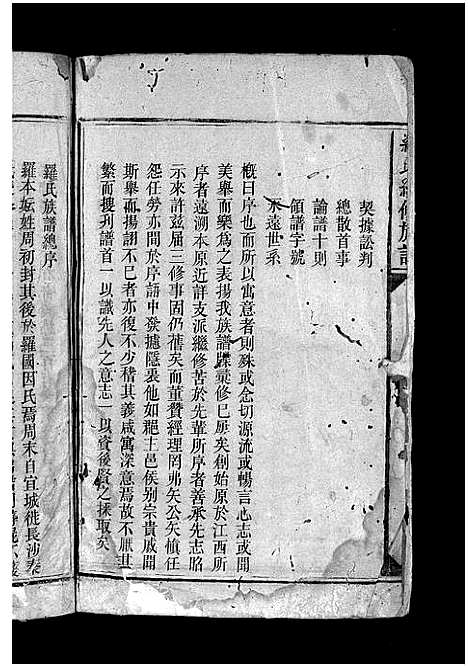 羅氏續修族譜
契據訟判
總散首事
論譜十則
領譜字號
永遠世系
概曰序也而所以寓意者則殊或念切源流或暢言心志或聞
美舉而樂為之表揚我族譜牒彙修巳屢矣創始原於江西所
序者遠溯本原近詳支派繼修苦於先輩所序者善承先志昭
示來許兹屆三修事固仍舊矣而董贊經理罔弗矢公矢慎任
怨任勞亦間於序語中發攄隱衷他如耝土邑侯别宗貴戚聞
斯舉而揚詡不已者亦復不少稽其義咸寓深意焉故不厭其
繁而搜列譜首一以識先人之意志一以資後賢之採取矣
羅氏族譜總序
羅本妘姓周初封其後於羅國因氏焉周末自宜城徙長沙秦